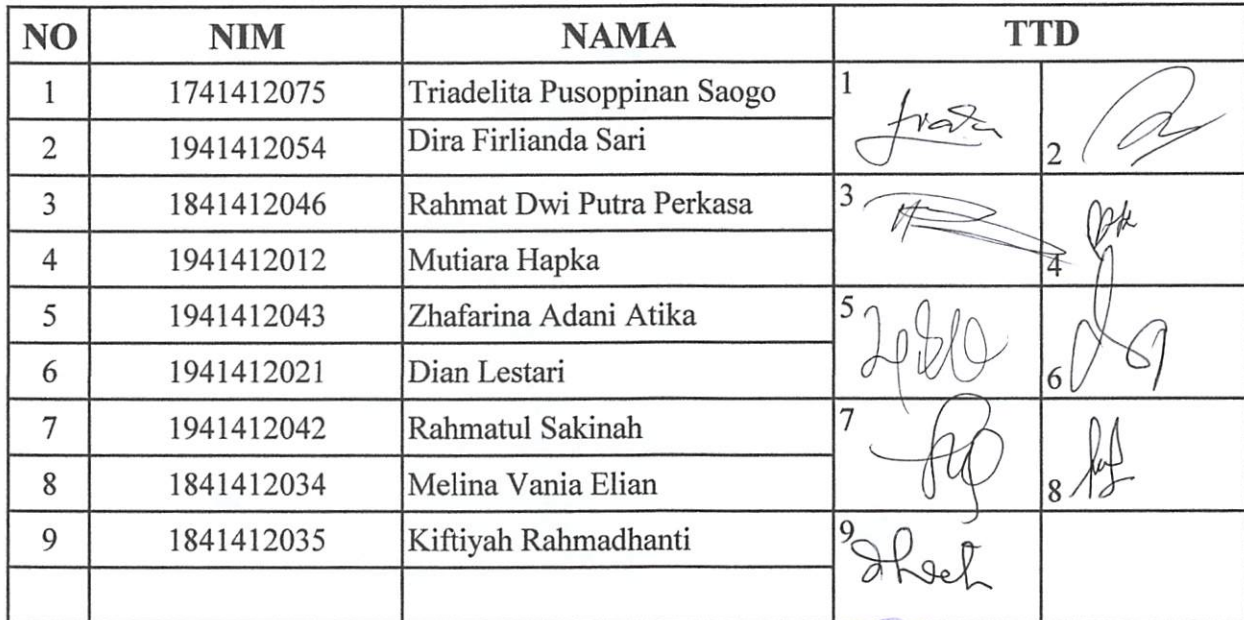 NO NIM NAMA TTD
1 1741412075 Triadelita Pusoppinan Saogo 1
2 1941412054 Dira Firlianda Sari 2
3 1841412046 Rahmat Dwi Putra Perkasa 3
4 1941412012 Mutiara Hapka 4
5 1941412043 Zhafarina Adani Atika 5
6 1941412021 Dian Lestari 6
7 1941412042 Rahmatul Sakinah 7
8 1841412034 Melina Vania Elian 8
9 1841412035 Kiftiyah Rahmadhanti 9